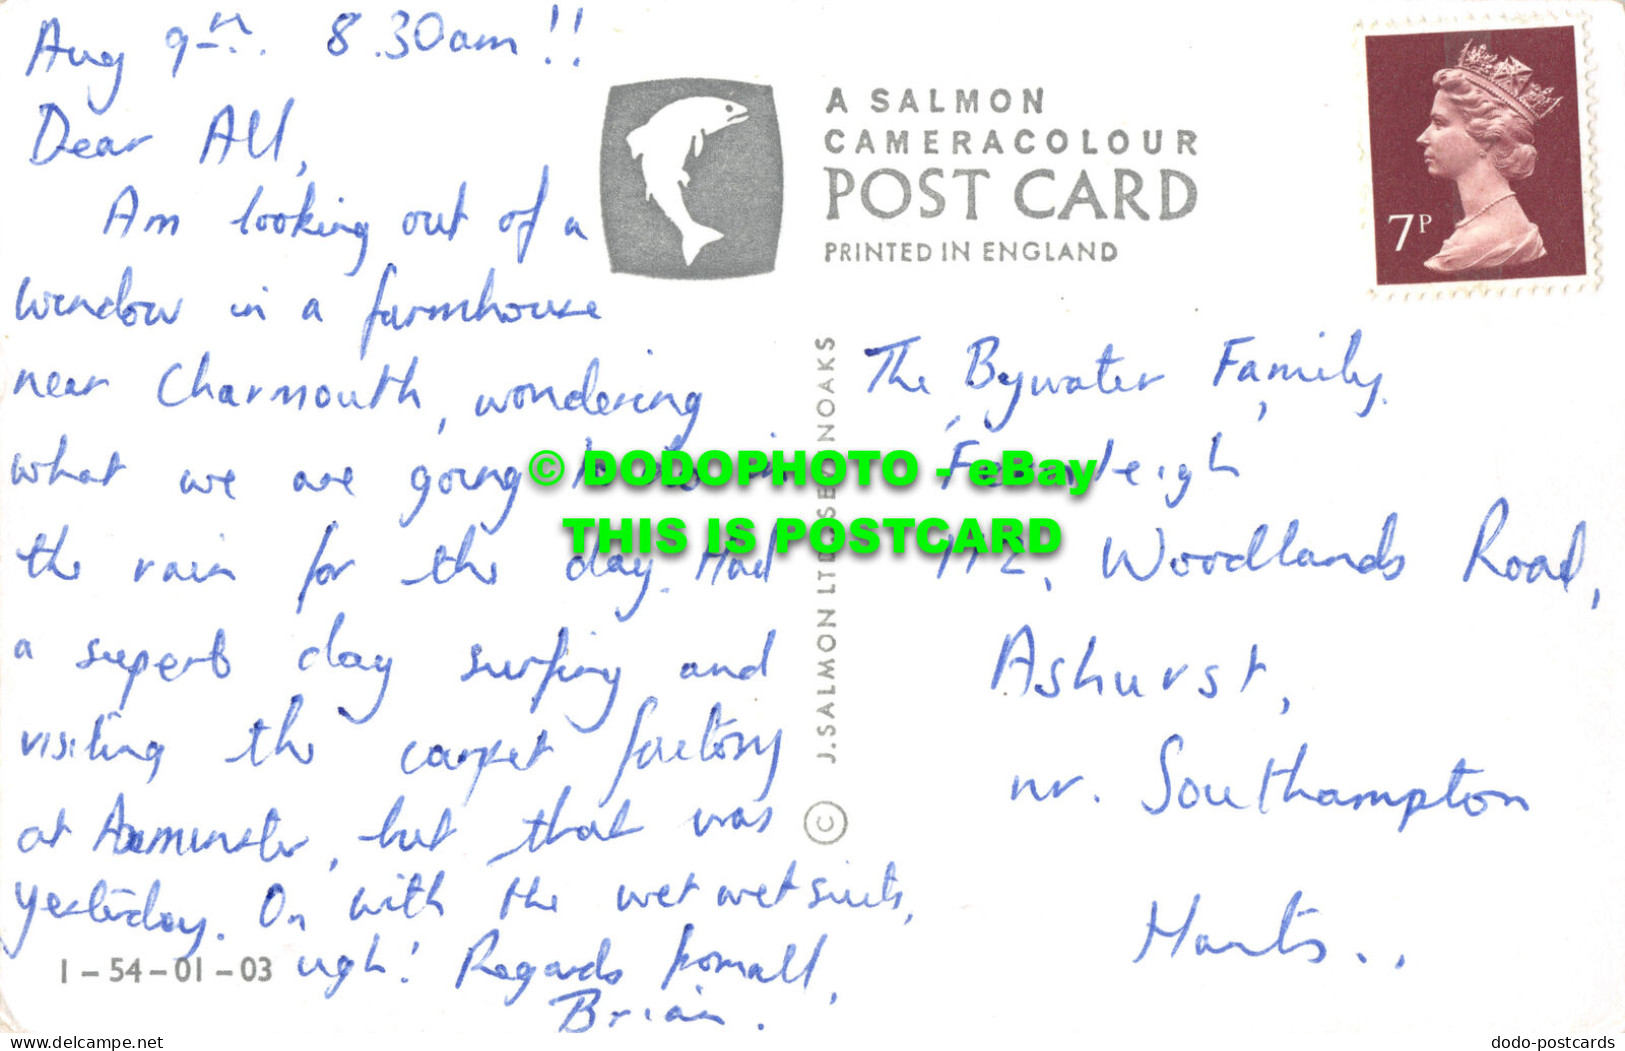 Aug 9th. 8.30am!!
Dear All,
Am looking out of a
window in a farmhouse
near Charmouth, wondering
what we are going to do in
the rain for the day. Had
a superb day surfing and
visiting the carpet factory
at Axminster, but that was
yesterday. On with the wet wetsuits,
ugh! Regards from all,
Brian.
1-54-01-03
A SALMON
CAMERACOLOUR
POST CARD
PRINTED IN ENGLAND
7P
J. SALMON LTD. SEVENOAKS ©
The Bywater Family,
112, Woodlands Road,
Ashurst,
nr. Southampton
Hants..
© DODOPHOTO - eBay
THIS IS POSTCARD
www.delcampe.net
dodo-postcards